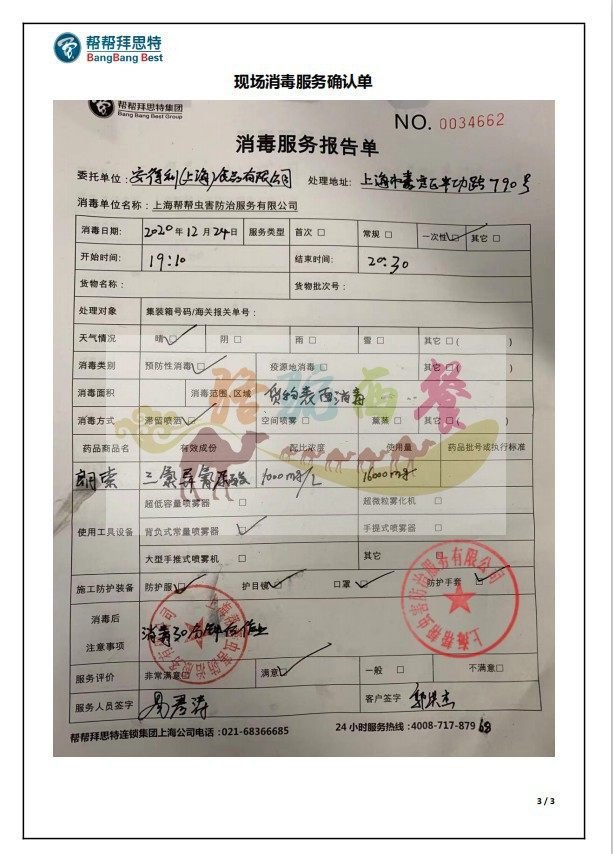 帮帮拜思特
BangBang Best
现场消毒服务确认单
帮帮拜思特集团
Bang Bang Best Group
NO. 0034662
消毒服务报告单
委托单位：安得利(上海)食品有限公司 处理地址：上海市奉贤区半功路790号
消毒单位名称：上海帮帮虫害防治服务有限公司
消毒日期： 2020年12月24日 服务类型 首次□ 常规□ 一次性□ 其它□
开始时间： 19:10 结束时间： 20:30
货物名称： 货物批次号：
处理对象 集装箱号码/海关报关单号：
天气情况 晴□ 阴□ 雨□ 雪□ 其它□( )
消毒类别 预防性消毒□ 疫源地消毒□ 其它□( )
消毒面积 消毒范围、区域 货物表面消毒
消毒方式 滞留喷洒□ 空间喷雾□ 熏蒸□ 其它□( )
骆驼西餐
药品商品名 有效成份 配比浓度 使用量 药品批号或执行标准
朗索 三氯异氰尿酸 1000mg/L 16000mg
使用工具设备 超低容量喷雾器□ 超微粒雾化机□
背负式常量喷雾器□ 手提式喷雾器□
大型手推式喷雾机□ 其它□
施工防护装备 防护服□ 护目镜□ 口罩□ 防护手套□
消毒后
注意事项 消毒30分钟后作业
上海帮帮虫害防治服务有限公司
服务评价 非常满意□ 满意□ 一般□ 不满意□
服务人员签字 客户签字
帮帮拜思特连锁集团上海公司电话：021-68366685 24小时服务热线：4008-717-879
3 / 3